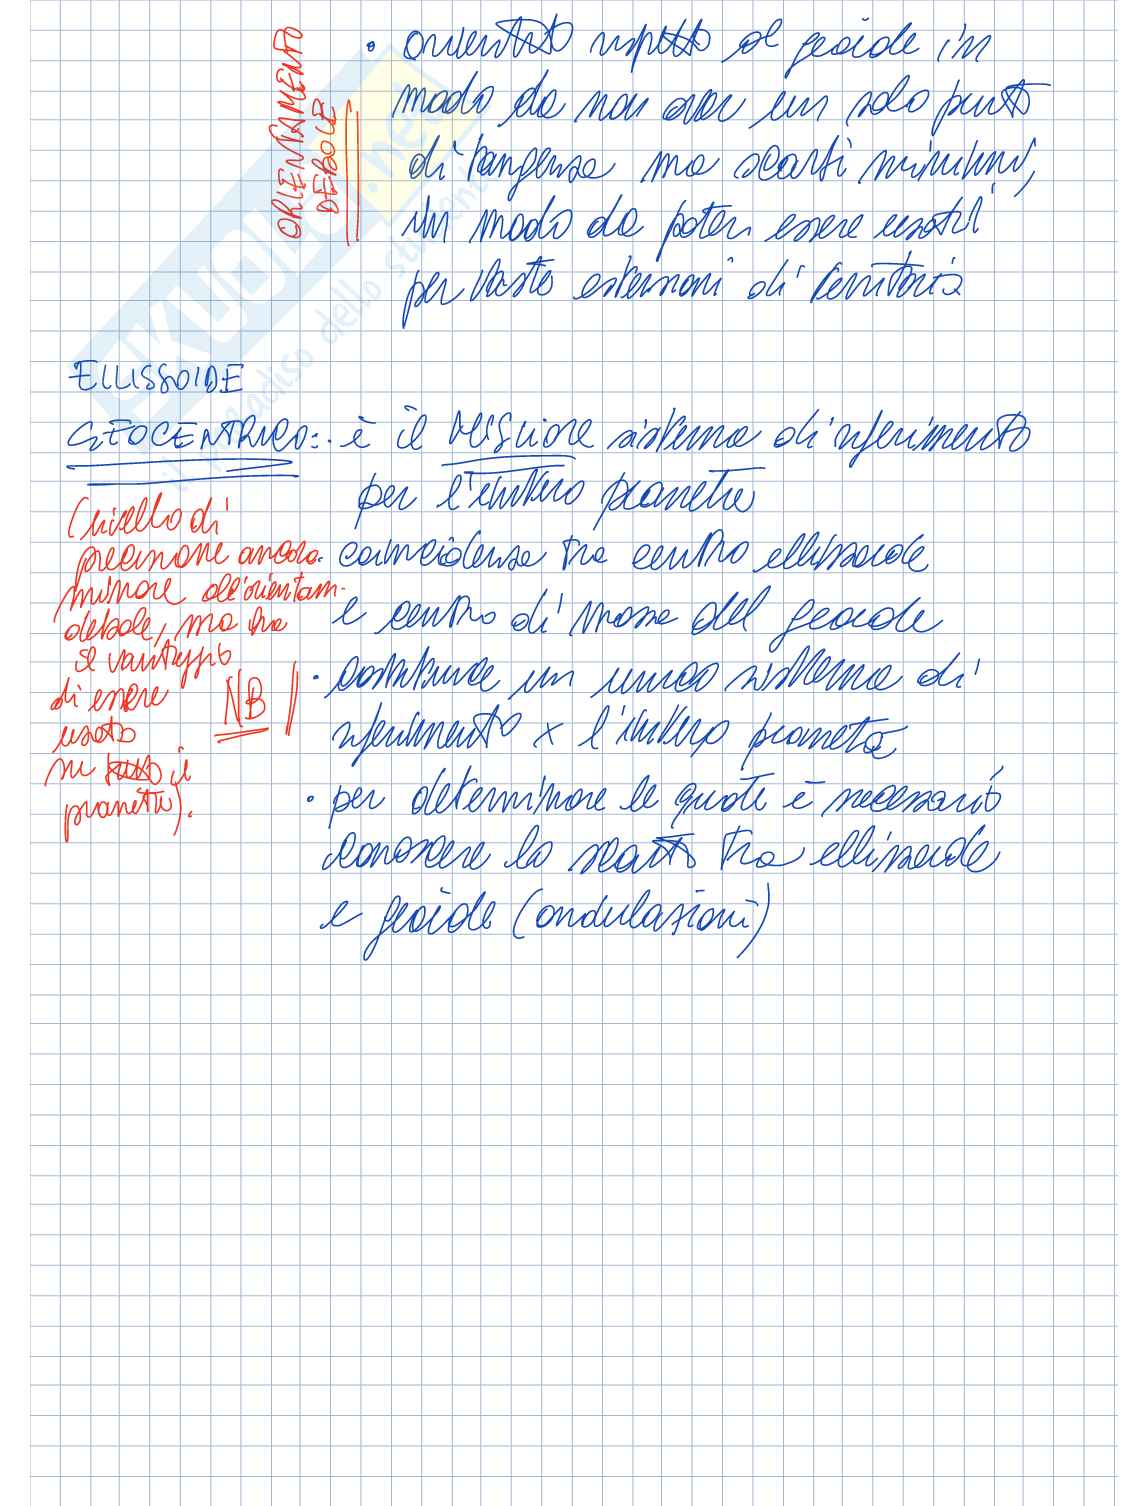 ORIENTAMENTO
DEBOLE
• orientato rispetto al geoide in
modo da non aver un solo punto
di tangenza ma scarti minimi,
in modo da poter essere usati
per vaste estensioni di territorio
ELLISSOIDE
GEOCENTRICO: • è il MIGLIORE sistema di riferimento
per l'intero pianeta
• coincidenza tra centro ellissoide
e centro di massa del geoide
• costituisce un unico sistema di
riferimento x l'intero pianeta
• per determinare le quote è necessario
conoscere lo scarto tra ellissoide
e geoide (ondulazioni)
(livello di
precisione ancora
minore dell'orientam.
debole, ma ha
il vantaggio
di essere
usato
su tutto il
pianeta).
NB
SKUOLA.net
il paradiso dello studente